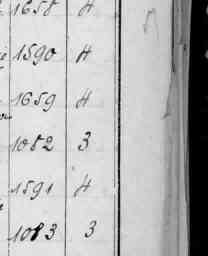 1658 4
1590 4
1659 4
1082 3
1591 4
1083 3